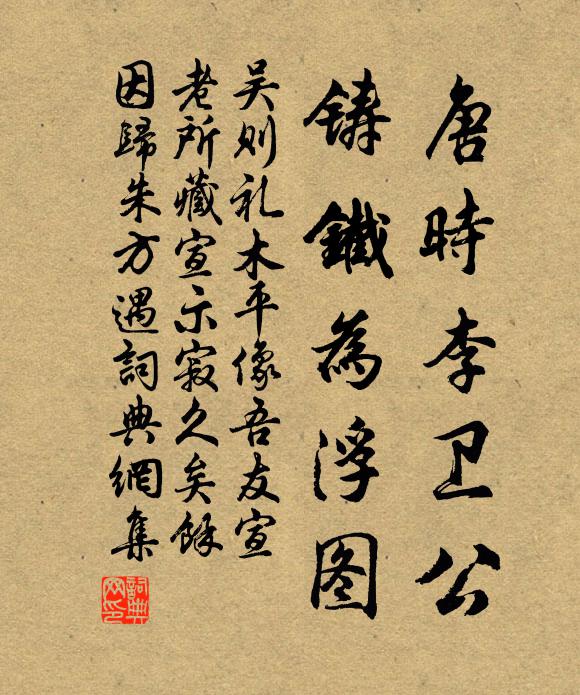 唐時李卫公
鑄鐵為浮图
吴则礼木平像吾友宣
老所藏宣示寂久矣馀
因歸朱方遇詞典網集
詞典
网印